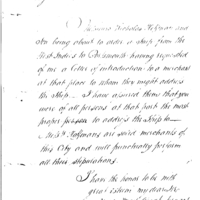 Nicholas Hofman and
Co being about to order a ship from the
West Indies to Portsmouth having requested
of me a letter of introduction to a merchant
at that place to whom they might address
the Ship — I have assured them that you
were of all persons at that port the most
proper person to address the Ship to —
Mess.rs Hofmans are solid merchants of
this City and will punctually perform
all their stipulations.
I have the honor to be with
great esteem my dear sir